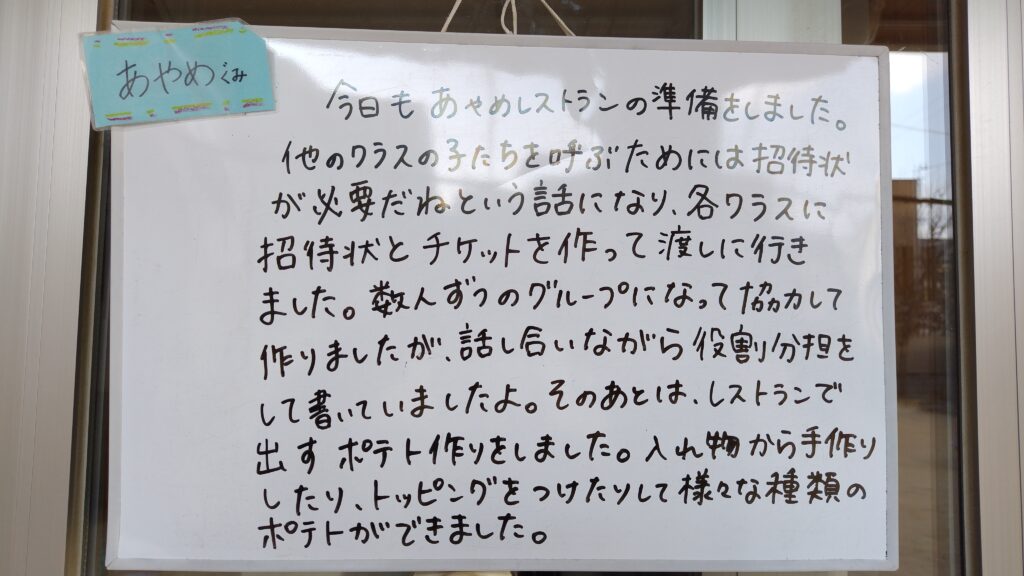 あやめぐみ
今日もあやめレストランの準備をしました。
他のクラスの子たちを呼ぶためには招待状
が必要だねという話になり、各クラスに
招待状とチケットを作って渡しに行き
ました。数人ずつのグループになって協力して
作りましたが、話し合いながら役割分担を
して書いていましたよ。そのあとは、レストランで
出すポテト作りをしました。入れ物から手作り
したり、トッピングをつけたりして様々な種類の
ポテトができました。